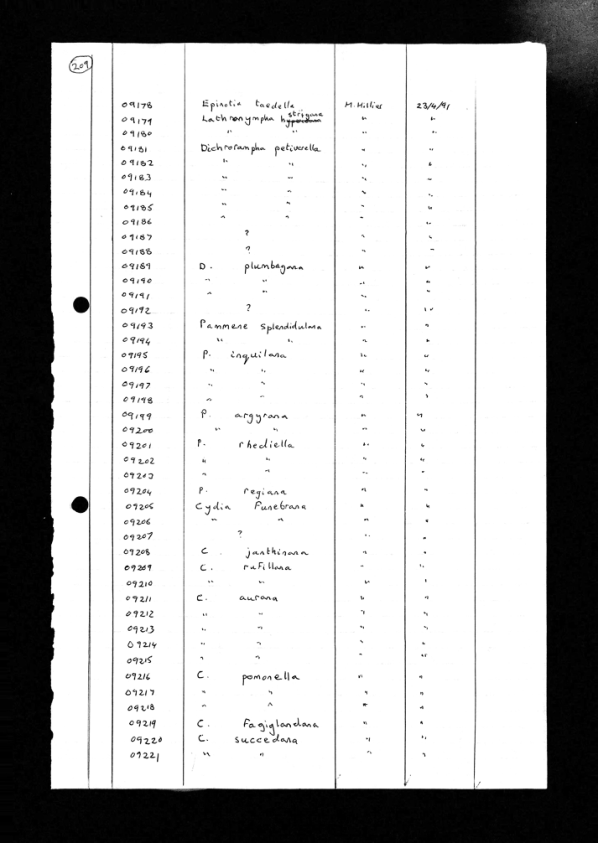 209
09178 Epinotia taedella M. Hillier 23/4/91
09179 Lathronympha strigana " "
09180 " " " "
09181 Dichrorampha petiverella " "
09182 " " " "
09183 " " " "
09184 " " " "
09185 " " " "
09186 " " " "
09187 ? " "
09188 ? " "
09189 D. plumbagana " "
09190 " " " "
09191 " " " "
09192 ? " "
09193 Pammene splendidulana " "
09194 " " " "
09195 P. inquilana " "
09196 " " " "
09197 " " " "
09198 " " " "
09199 P. argyrana " "
09200 " " " "
09201 P. rhediella " "
09202 " " " "
09203 " " " "
09204 P. regiana " "
09205 Cydia funebrana " "
09206 " " " "
09207 ? " "
09208 C. janthinana " "
09209 C. rufillana " "
09210 " " " "
09211 C. aurana " "
09212 " " " "
09213 " " " "
09214 " " " "
09215 " " " "
09216 C. pomonella " "
09217 " " " "
09218 " " " "
09219 C. fagiglandana " "
09220 C. succedana " "
09221 " " " "